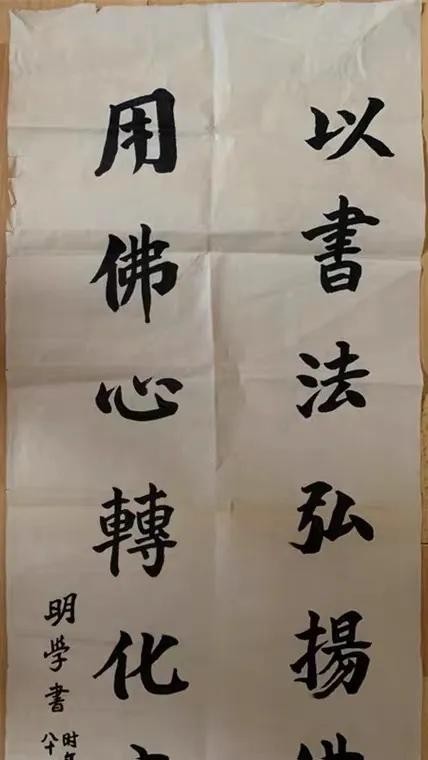 以書法弘揚佛
用佛心轉化
明學書
时年
八十